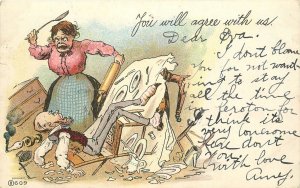 You will agree with us
Dear Eva.
I don't blame
you for not want
ing to stay
all the time
in Croton for
I think its
very lonesome
there don't
you
with love
Amy.
©609